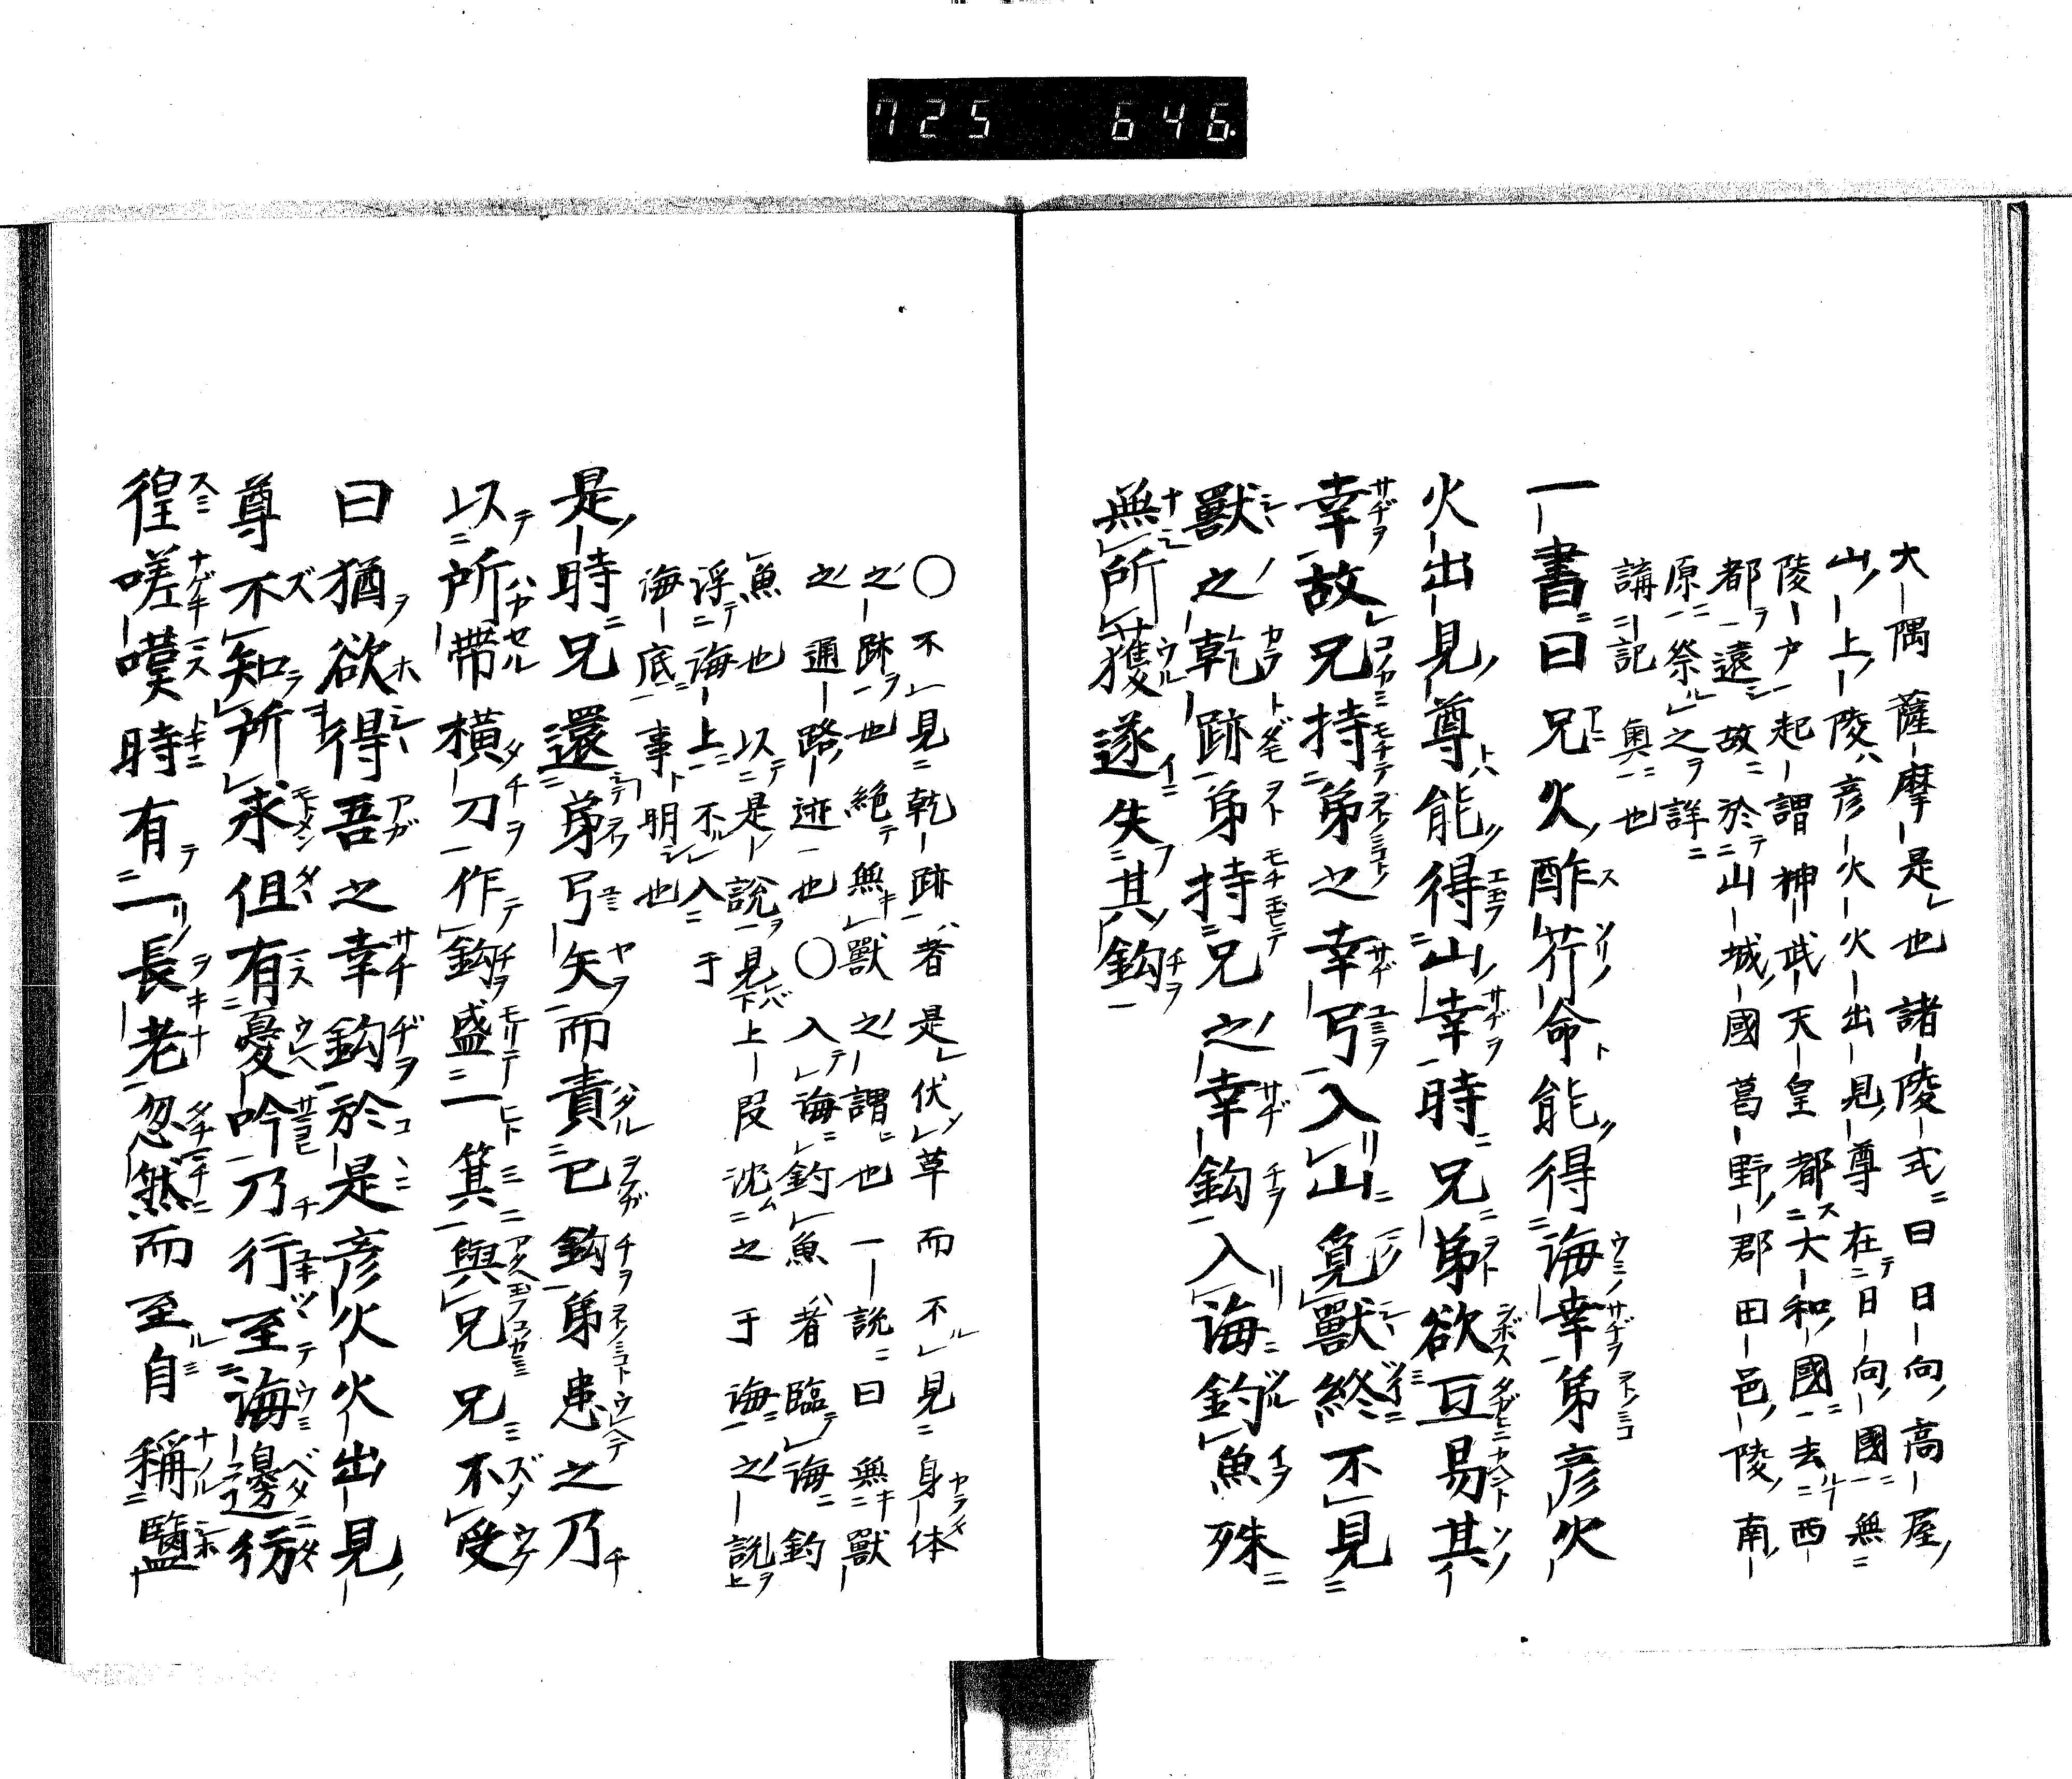 725 646.
大隅薩摩是也諸陵式曰日向高屋
山上陵彦火火出見尊在日向國無
陵戸起謂神武天皇都大和國去西
都遠故於山城國葛野郡田邑陵南
原祭之詳
講記奥也
一書曰兄火酢芹命能得海幸弟彦火
火出見尊能得山幸時兄弟欲互易其
幸故兄持弟之幸弓入山覓獸終不見
獸之乾跡弟持兄之幸鈎入海釣魚殊
無所獲遂失其鈎
〇不見乾跡者是伏草而不見身体
之跡也絶無獸之謂也一説曰無獸
之通路迹也〇入海釣魚者臨海釣
魚也以是説見上段沈之于海之説
浮海上不入于
海底事明也
是時兄還弟弓矢而責己鈎弟患之乃
以所帶横刀作鈎盛一箕與兄兄不受
曰猶欲得吾之幸鈎於是彦火火出見
尊不知所求但有憂吟乃行至海邊彷
徨嗟嘆時有一長老忽然而至自稱鹽